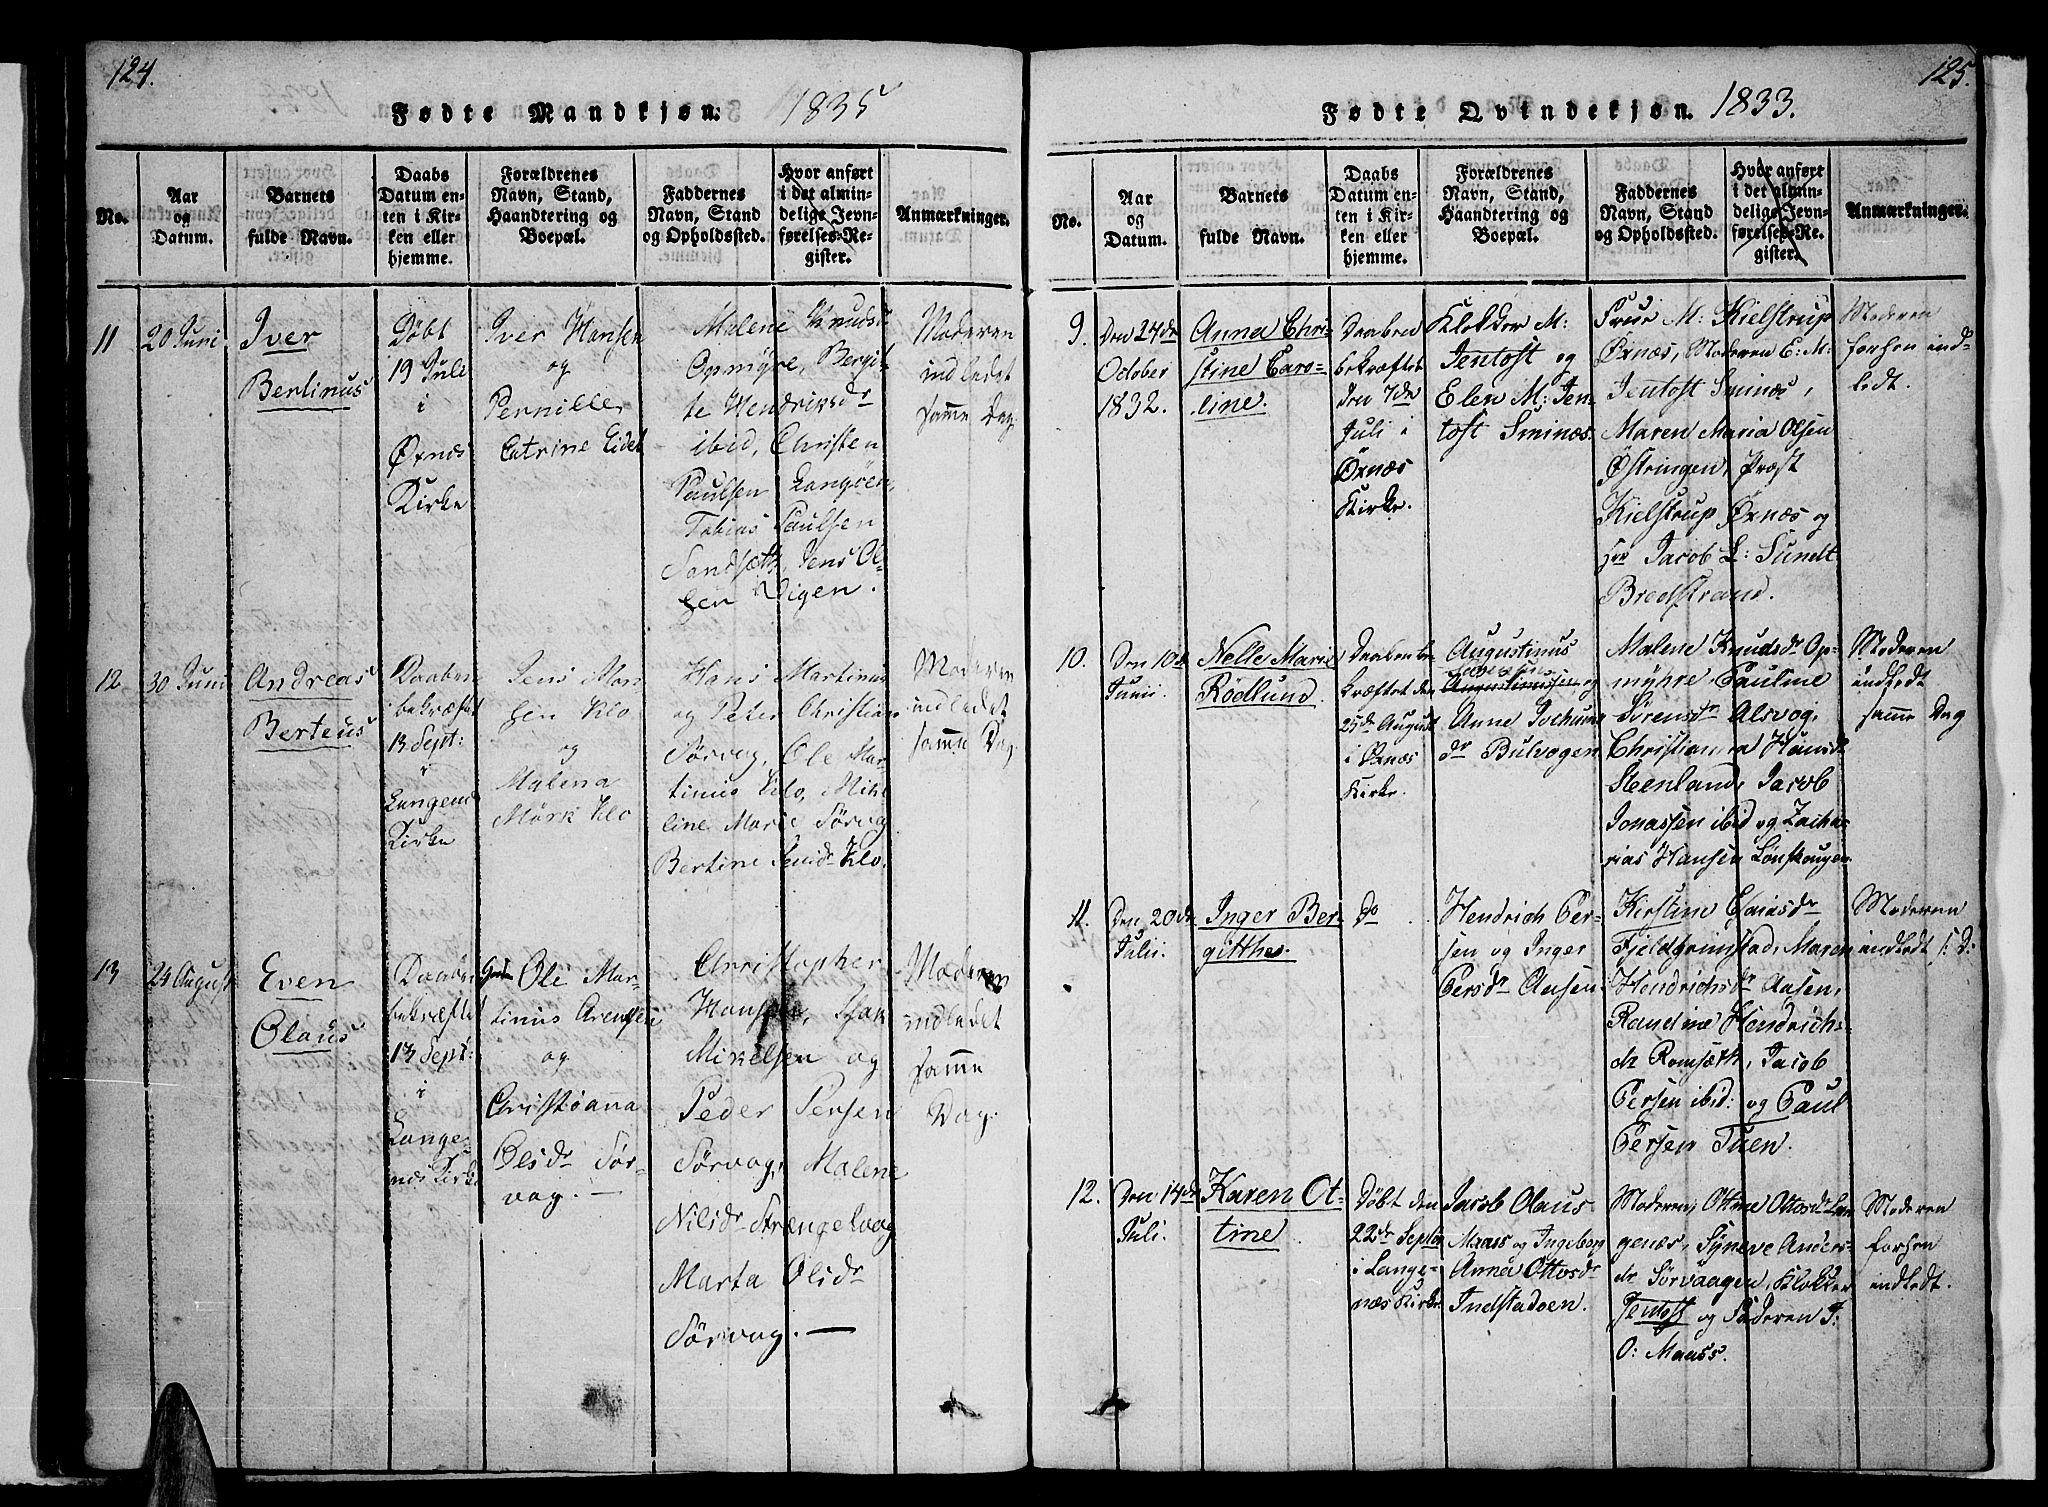 124.
Fødte Mandkjøn: 1835
No.
Aar
og
Datum.
Barnets
fulde Navn.
Daabs
Datum en-
ten i Kir-
ken eller
hjemme.
Forældrenes
Navn, Stand,
Haandtering og
Boepæl.
Faddernes
Navn, Stand
og Opholdssted.
Hvor anført
i det almin-
delige Jevn-
førelses-Re-
gister.
Anmærkninger.
11
20 Juni
Iver
Bertinus
Døbt
19 Juli
i
Øxnæs
Kirke
Iver Hansen
og
Pernille
Catrine Eidet
Malene Knudsdr
Opmyre, Bergit-
te Hendriksdr
ibid, Christen
Paulsen Langøen,
Tobias Paulsen
Sandsæth, Jens Ol-
sen Vigen.
Moderen
indledet
samme Dag
12
30 Juni
Andreas
Berteus
Daaben
bekræftet
13 Sept:
i
Langenæs
Kirke
Jens Mon-
sen Klo
og
Malena
Mørk Klo
Hans Martinus
og Peter Christian
Sørvag, Ole Mar-
tinus Klo,
line Marie Sørvag
Bertine Jensdr Klo.
Moderen
indledet
samme Dag
13
24 August
Even
Olaus
Daaben
bekræftet
13 Sept:
i
Lange-
næs Kirke
Ole Mar-
tinus Arentsen
og
Christianna
Olsdr Sør-
vag. —
Christopher
Hansen, Isak
Mikelsen og
Peder Persen
Sørvag, Malene
Nilsdr Strængelvag
Marta Olsdr
Sørvag. —
Moderen
indledet
samme
Dag.
125.
Fødte Qvindekjøn. 1833.
No.
Aar
og
Datum.
Barnets
fulde Navn.
Daabs
Datum en-
ten i Kir-
ken eller
hjemme.
Forældrenes
Navn, Stand,
Haandtering og
Boepæl.
Faddernes
Navn, Stand
og Opholdssted.
Hvor anført
i det almin-
delige Jevn-
førelses-Re-
gister.
Anmærkninger.
9.
Den 24de
October
1832.
Anna Chri-
stine Caro-
line.
Daaben
bekræftet
den 7de
Juli i
Øxnæs
Kirke.
Klokker M:
Jentoft og
Elen M: Jen-
toft Sminæs.
Frue M: Kielstrup
Øxnæs, Moderen E: M:
Jentoft Sminæs,
Maren Maria Olsen
Østringen, Præst
Kielstrup Øxnæs og
Hr Jacob L: Sundt
Bredstrand.
Moderen
forhen ind-
ledt.
10.
Den 10de
Junii
Nelle Marie
Rödlund.
Daaben be-
kræftet den
25de August
i Øxnæs
Kirke.
Augustinus
Augustinussen og
Anne Jochums
dr Bulvogen
Malene Knudsdr Op-
myhre Pauline
Sørensdr Alsvog,
Christianna Hansdr
Stenland, Jacob
Jonassen ibid og Zacha-
rias Hansen Lønskaugen
Moderen
indledt
samme Dag
11.
Den 20de
Julii.
Inger Ber-
gitthe.
Do
Hendrich Per-
sen og Inger
Persdr Aasen
Kirstine Esaiasdr
Fjeldgrimstad, Maren
Hendrichsdr Aasen,
Randine Hendrichs-
dr Romsæth, Jacob
Persen ibid: og Paul
Persen Tuen.
Moderen
indledt s: D:
12.
Den 14de
Juli.
Karen Ot-
tine
Døbt den
22de Septbr
i Lange-
næs Kirke
Jacob Olaus
Maass og Ingeborg
Anna Ottosdr
Indstadoen.
Moderen, Ottine Ottosdr Lan-
genæs, Syneve Anders-
dr Sørvaagen, Klokker
Jentoft og Faderen J:
O: Maass.
Moderen
forhen
indledt.